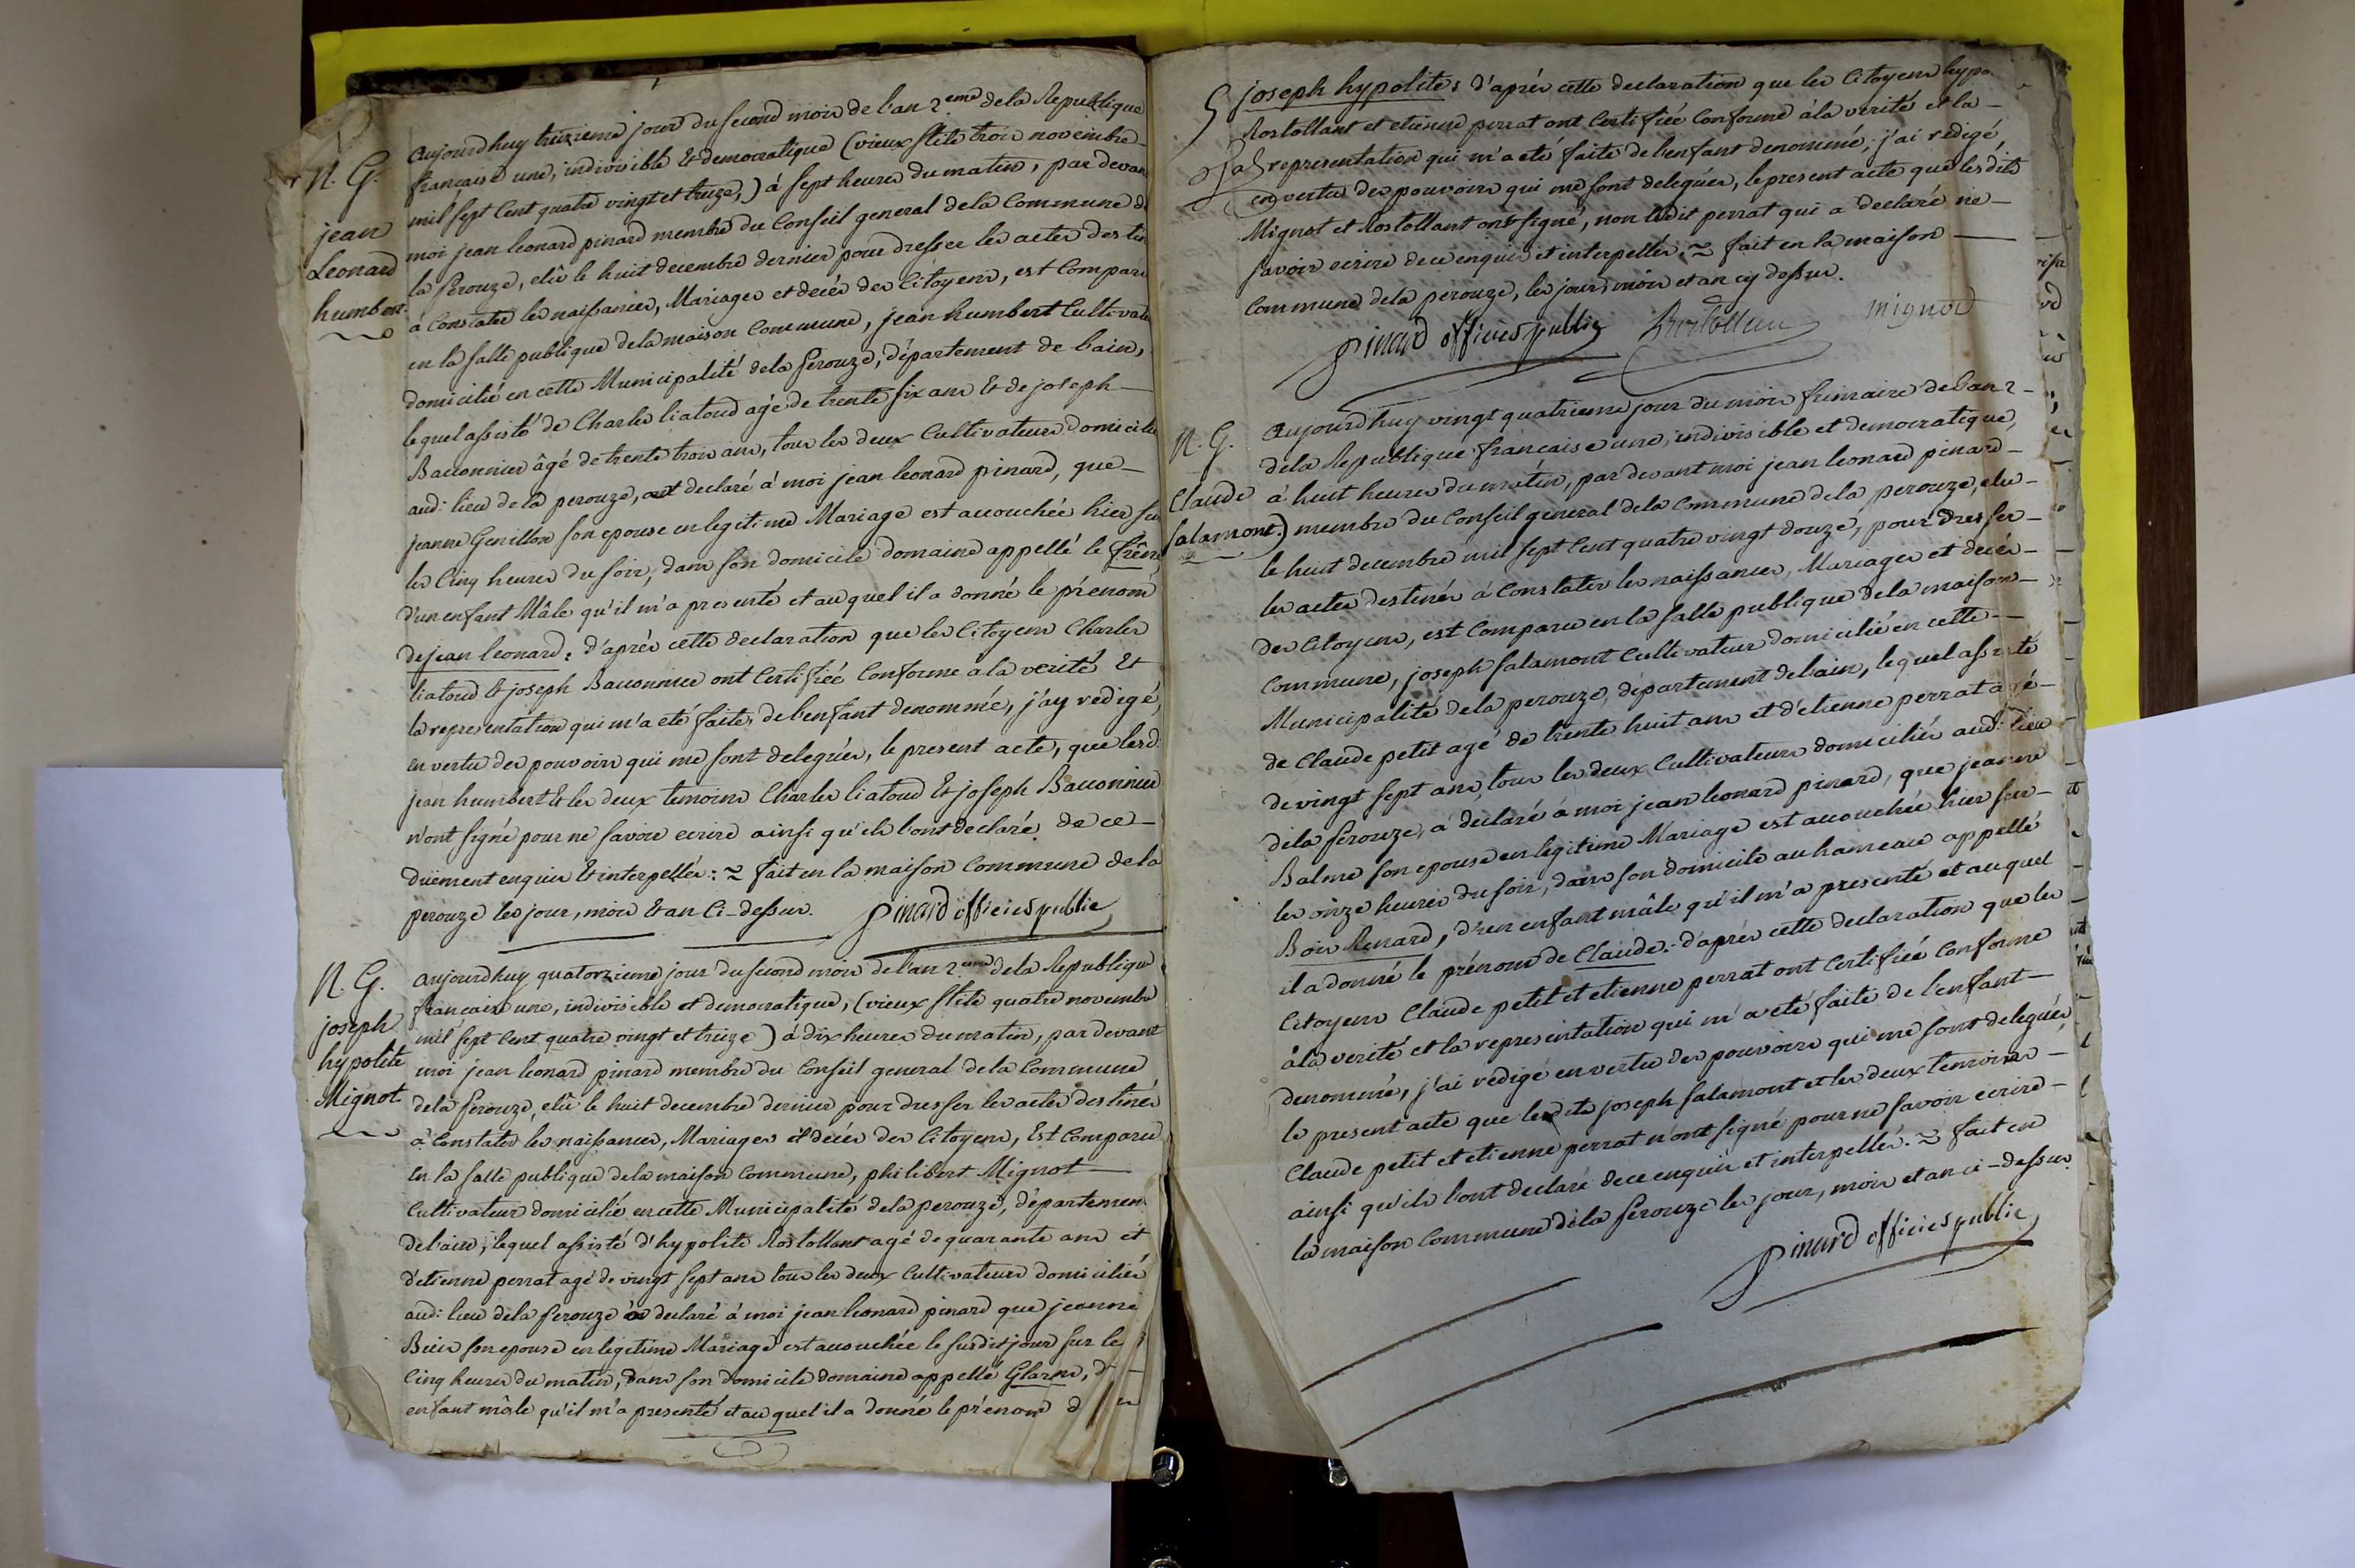 N. G.
jean
Leonard
humbert
aujourdhuy treizieme jour du second mois de l'an 2.eme de la Republique
francaise une, indivisible & democratique (vieux stile trois novembre
mil sept cent quatre vingt et treize,) à sept heures du matin, par devan
moi jean leonard pinard membre du Conseil general de la Commune de
la perouze, elû le huit decembre dernier pour dresser les actes destin
à Constater les naissances, Mariages et decés des Citoyens, est Comparu
en la salle publique de la maison Commune, jean humbert Cultivat
domicilié en cette Municipalité de la perouze, département de l'ain,
lequel assisté de Charles liatoud agé de trente six ans & de joseph
Bauonnier âgé de trente trois ans, tous les deux Cultivateurs domiciliés
aud: lieu de la perouze, ont declaré à moi jean leonard pinard, que
jeanne Genillon son epouse en legitime Mariage est acouchée hier sur
les Cinq heures du soir, dans son domicile domaine appellé le frêne
d'un enfant Mâle qu'il m'a presenté et auquel il a donné le prénom
de jean leonard: d'aprés cette declaration que les Citoyens Charles
liatoud & joseph Bauonnier ont Certifiée Conforme à la verité &
la representation qui m'a eté faite, de l'enfant denommé, j'ay redigé,
en vertu des pouvoirs qui me sont delegués, le present acte, que lesd:
jean humbert & les deux temoins Charles liatoud & joseph Bauonnier
n'ont signé pour ne savoir ecrire ainsi qu'ils l'ont declaré de ce
düement enquis & interpellés: fait en la maison Commune de la
perouze les jour, mois & an Ci-dessus. pinard officier public
N. G.
joseph
hypolite
Mignot
aujourdhuy quatorzieme jour du second mois de l'an 2.eme de la Republique
francaise une, indivisible et democratique, (vieux stile quatre novembre
mil sept cent quatre vingt et treize) à dix heures du matin, par devant
moi jean leonard pinard membre du Conseil general de la Commune
de la perouze, elû le huit decembre dernier pour dresser les actes destinés
à Constater les naissances, Mariages et decés des Citoyens, Est Comparu
en la salle publique de la maison Commune, philibert Mignot
Cultivateur domicilié en cette Municipalité de la perouze, départemen
de l'ain, lequel assisté d'hypolite Rostollant agé de quarante ans et
d'etienne perrat agé de vingt sept ans tous les deux Cultivateurs domiciliés
aud: lieu de la perouze a declaré à moi jean leonard pinard que jeanne
son epouse en legitime Mariage est acouchée le susdit jour sur le
Cinq heures du matin, dans son domicile domaine appellé Glarne, d
enfant mâle qu'il m'a presenté et auquel il a donné le prénom d
joseph hypolite: d'aprés cette declaration que les Citoyens hypo
Rostollant et etienne perrat ont Certifiée Conforme à la verité et la
representation qui m'a eté faite de l'enfant denommé, j'ai redigé,
en vertu des pouvoirs qui me sont delegués, le present acte que lesdits
Mignot et Rostollant ont signé, non ledit perrat qui a declaré ne
savoir ecrire de ce enquis et interpellés. fait en la maison
Commune de la perouze, les jour, mois et an cy dessus.
pinard officier public Rostollan mignot
N. G.
Claude
Salamont.
aujourdhuy vingt quatrieme jour du mois frimaire de l'an 2
de la Republique francaise une, indivisible et democratique,
à huit heures du matin, par devant moi jean leonard pinard
membre du Conseil general de la Commune de la perouze, elu
le huit decembre mil sept cent quatre vingt douze, pour dresser
les actes destinés à Constater les naissances, Mariages et decés
des Citoyens, est Comparu en la salle publique de la maison
Commune, joseph salamont Cultivateur domicilié en cette
Municipalité de la perouze, département de l'ain, lequel assisté
de Claude petit agé de trente huit ans et d'etienne perrat agé
de vingt sept ans, tous les deux Cultivateurs domiciliés aud: lieu
de la perouze, a declaré à moi jean leonard pinard, que jeanne
Balme son epouse en legitime Mariage est acouchée hier sur
les onze heures du soir, dans son domicile au hameau appellé
Bois Renard, d'un enfant mâle qu'il m'a presenté et auquel
il a donné le prénom de Claude: d'aprés cette declaration que les
Citoyens Claude petit et etienne perrat ont Certifiée Conforme
à la verité et la representation qui m'a eté faite de l'enfant
denommé, j'ai redigé en vertu des pouvoirs qui me sont delegués
le present acte que lesdits joseph salamont et les deux temoins
Claude petit et etienne perrat n'ont signé pour ne savoir ecrire
ainsi qu'ils l'ont declaré de ce enquis et interpellés. fait en
la maison Commune de la perouze les jour, mois et an ci-dessus.
pinard officier public